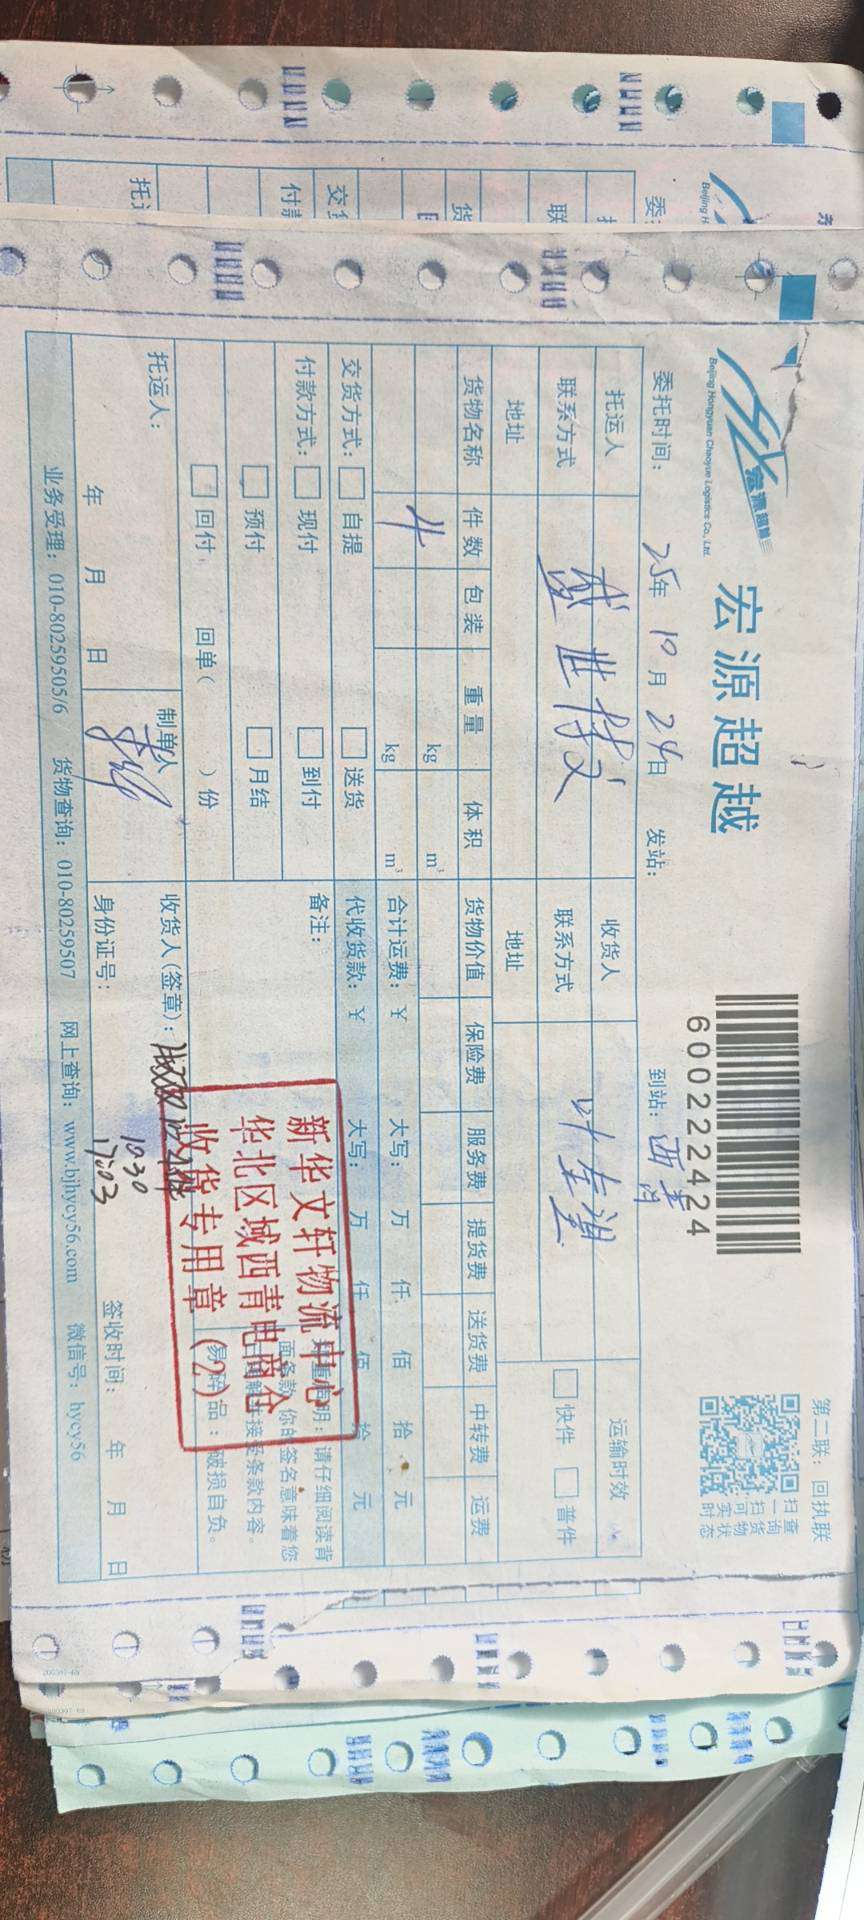 宏源超越
宏源超越
Beijing Hongyuan Chaoyue Logistics Co., Ltd.
6000222424
扫一扫可实时
查询货物状态
第二联：回执联
委托时间： 25年 10月 24日 发站： 到站： 西青
托运人 盛世博文 收货人 运输时效
联系方式 联系方式 快件 普件
地址 地址
货物名称 件数 包装 重量 体积 货物价值 保险费 服务费 提货费 送货费 中转费 运费
kg m³
4 kg m³ 合计运费：￥ 大写： 万 仟 佰 拾 元
交货方式： 自提 送货 代收货款：￥ 大写： 万 仟 佰 拾 元
付款方式： 现付 到付 备注：
预付 月结
回付 回单( )份
郑重声明：请仔细阅读背
面条款，你的签名意味着您
理解并接受条款内容。
易碎品：破损自负。
新华文轩物流中心
华北区域西青电商仓
收货专用章（2）
托运人： 制单人 收货人(签章)：
10.30
17:03
年 月 日 身份证号： 签收时间： 年 月 日
业务受理：010-80259505/6 货物查询：010-80259507 网上查询：www.bjhycy56.com 微信号：hycy56